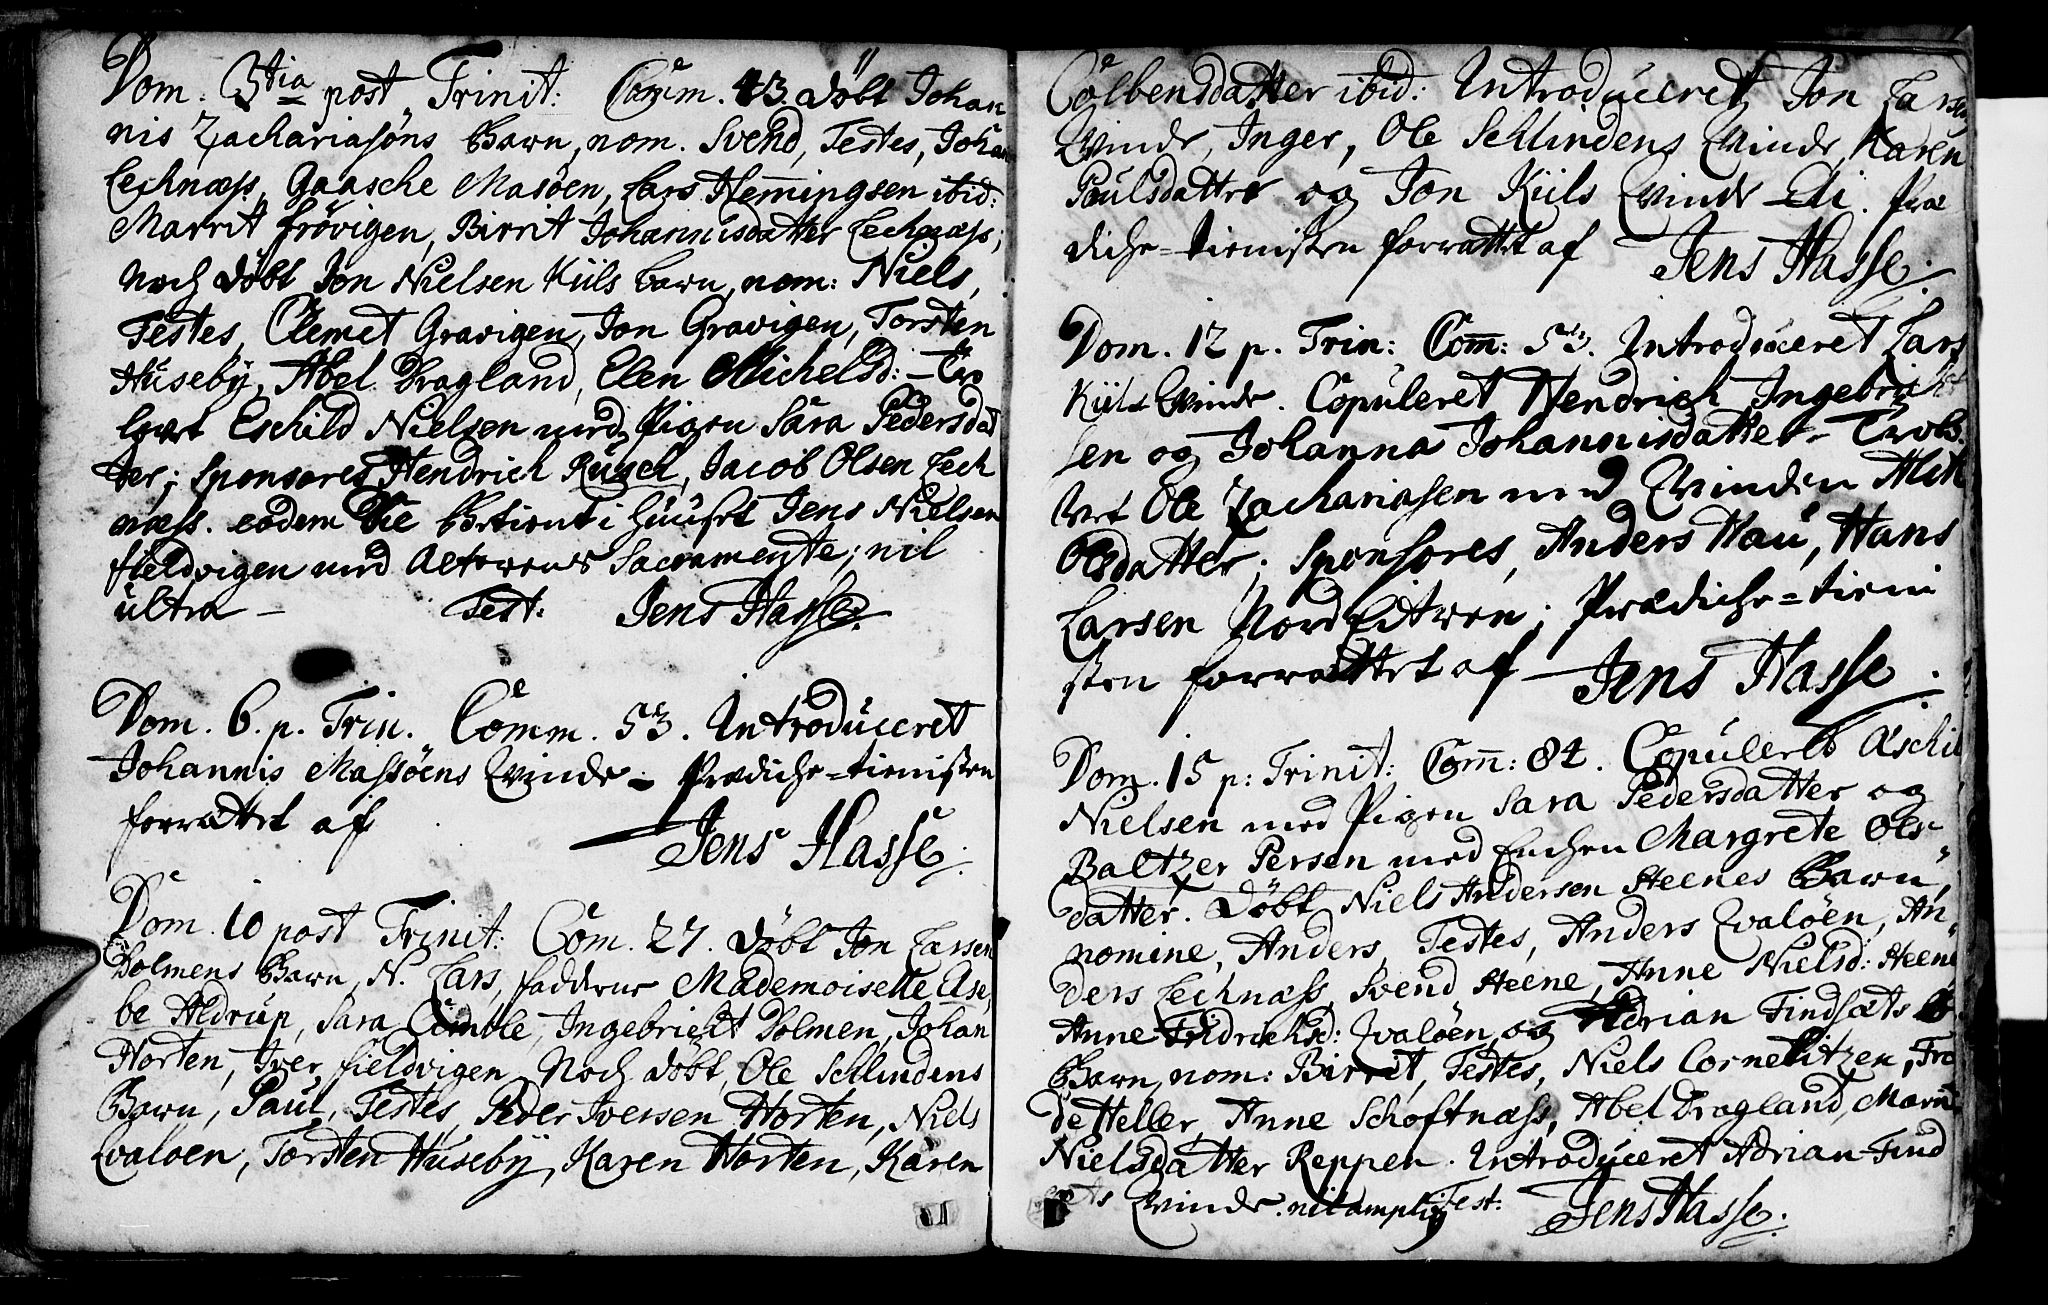 Dom. 3tia post Trinit: Comm. 43. Döbt Johan
nis Zachariasöns Barn, nom. Svend, Testes, Johan
Lechnæss, Gaasche Masöen, Lars Hemingsen ibid:
Marrit frövigen, Birrit Johannisdatter Lechnæss;
Noch Döbt Jon Nielsen Kiils Barn, nom: Niels,
Testes, Clemet Gravigen, Jon Gravigen, Torsten
Huseby, Abel Dragland, Elen Michelsd: - Tro
lovet Eschild Nielsen med Pigen Sara Pedersdat
ter; sponsores Hendrich Jacob Olsen Lech
næss. eodem Die Betient i Huuset Jens Nielsen
fieldvigen med Alterens Sacramente; nil
ultra - Test: Jens Hasse.
Dom. 6. p. Trin. Comm. 53. Introduceret
Johannis Massöens Qvinde - Prædiche=tienisten
forrættet af
Jens Hasse.
Dom. 10 post Trinit: Com. 27. Döbt Jon Larsen
Dolmens Barn, N. Lars, fadderne Mademoiselle Else,
be Aldrup, Sara Ingebricht Dolmen, Johan
Horten, Iver fieldvigen. Noch Döbt, Ole Schlindens
Barn, Paul, Testes, Peder Iversen Horten, Niels
Qvaloen, Torsten Huseby, Karen Horten, Karen
51
Colbensdatter ibid: Introduceret Jon Larsens
Qvinde, Inger, Ole Schlindens Qvinde, Karen
Poulsdatter og Jon Kiils Qvinde Eli. Præ
diche=tienisten forrættet af Jens Hasse.
Dom. 12 p. Trin: Com: 53. Introduceret Lars
Kiils Qvinde. Copuleret Hendrich Ingebricht
sen og Johanna Johannisdatter - Trol
vet Ole Zachariasen med Qvinden Mett
Olsdatter; Sponsores, Anders Hau, Hans
Larsen Nord Eitran; Prædiche=tieni
sten forrættet af Jens Hasse.
Dom. 15 p: Trinit: Com: 84. Copuleret Eschil
Nielsen med Pigen Sara Pedersdatter og
Baltzer Persen med Enchen Margrete Ols
datter. Döbt, Niels Andersen Heenes Barn,
nomine, Anders, Testes, Anders Qvalöen, An
ders Lechnæss, Svend Heene, Anne Nielsd: Heene
Anne Fridrichsd: Qvalöen, og Adrian Findsæts
Barn, nom: Birret, Testes, Niels Cornelitzen, Tro
de Heller, Anne Schoftnæss, Abel Dragland, Marrit
Nielsdatter Reppen. Introduceret Adrian Find
sæts Qvinde. nil amplig Test: Jens Hasse.